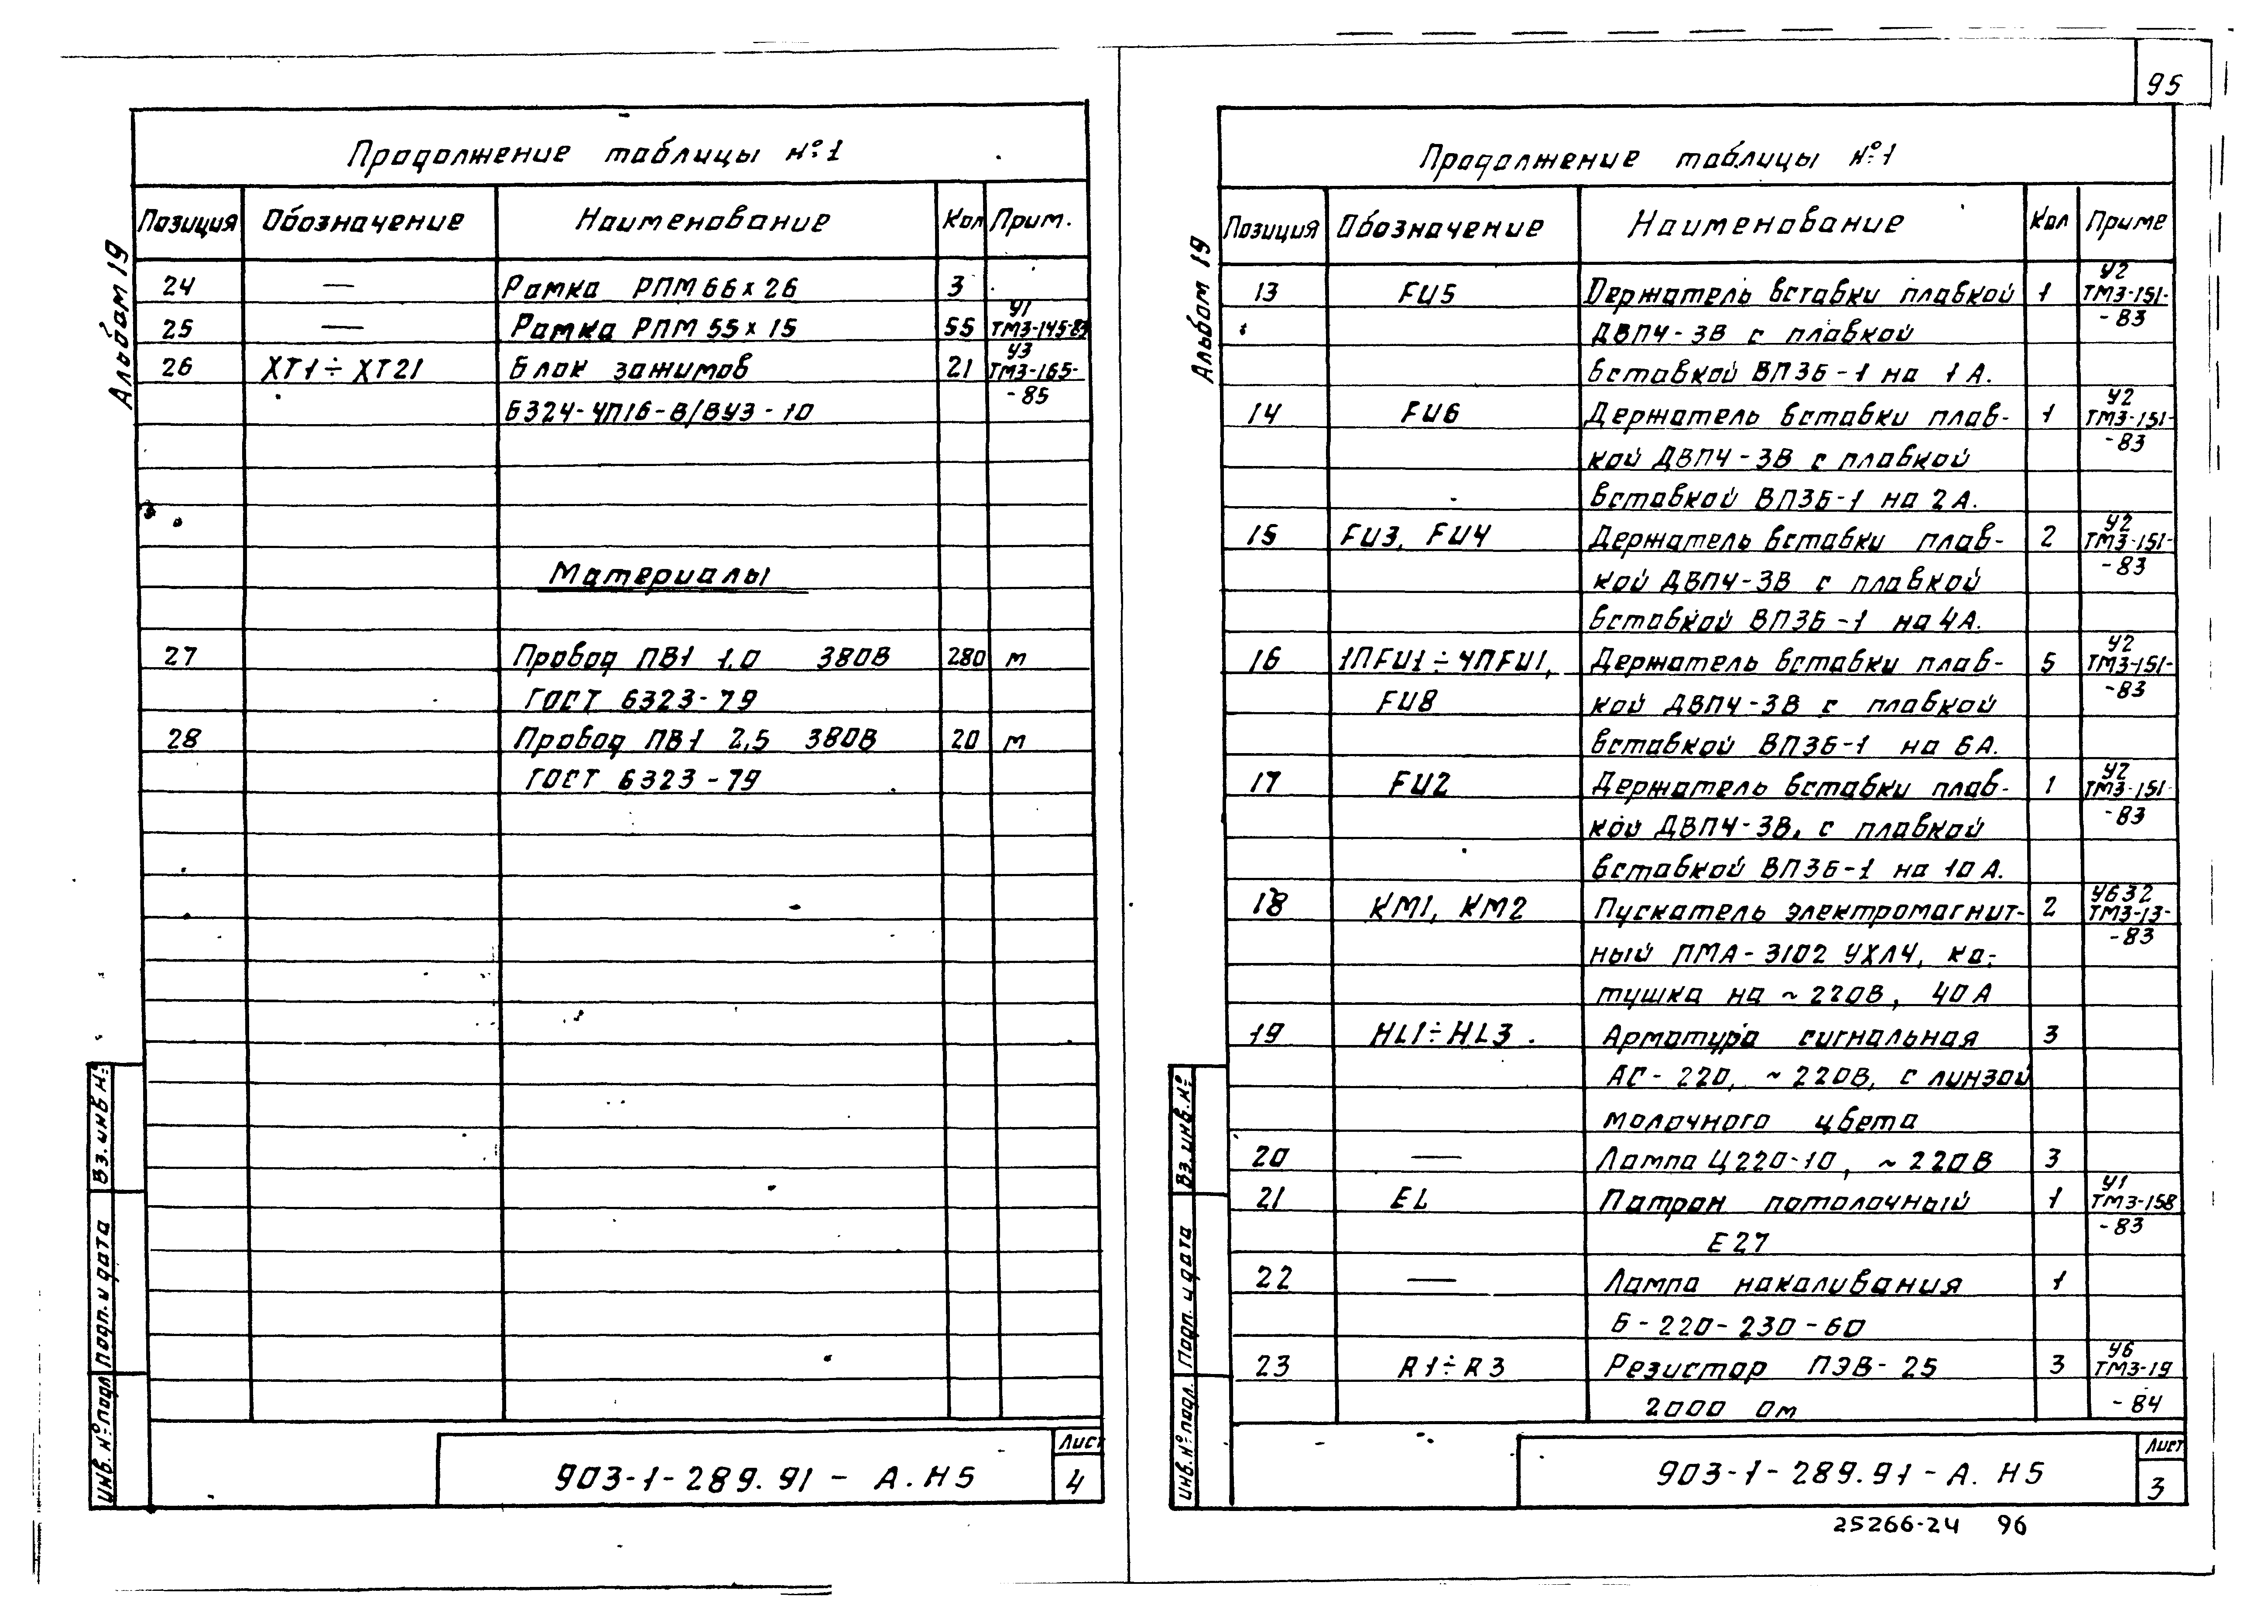 95
Альбом 19
Продолжение таблицы №1
Позиция Обозначение Наименование Кол Прим.
24 — Рамка РПМ 66х26 3
25 — Рамка РПМ 55х15 55 У1 ТМ3-145-83
26 ХТ1÷ХТ21 Блок зажимов 21 У3 ТМ3-165-
Б324-4П16-В/ВУ3-10 -85
Материалы
27 Провод ПВ1 1,0 380В 280 м
ГОСТ 6323-79
28 Провод ПВ1 2,5 380В 20 м
ГОСТ 6323-79
Вз.инв №
Подп. и дата
Инв.№подл
903-1-289.91-А.Н5
Лист
4
Альбом 19
Продолжение таблицы №1
Позиция Обозначение Наименование Кол Приме
13 FU5 Держатель вставки плавкой 1 У2 ТМ3-151-
ДВП4-3В с плавкой -83
вставкой ВП3Б-1 на 1А.
14 FU6 Держатель вставки плав- 1 У2 ТМ3-151-
кой ДВП4-3В с плавкой -83
вставкой ВП3Б-1 на 2А.
15 FU3, FU4 Держатель вставки плав- 2 У2 ТМ3-151-
кой ДВП4-3В с плавкой -83
вставкой ВП3Б-1 на 4А.
16 1ПFU1÷4ПFU1, Держатель вставки плав- 5 У2 ТМ3-151-
FU8 кой ДВП4-3В с плавкой -83
вставкой ВП3Б-1 на 6А.
17 FU2 Держатель вставки плав- 1 У2 ТМ3-151-
кой ДВП4-3В, с плавкой -83
вставкой ВП3Б-1 на 10А.
18 КМ1, КМ2 Пускатель электромагнит- 2 У632 ТМ3-13-
ный ПМА-3102 УХЛ4, ка- -83
тушка на ~220В, 40А
19 HL1÷HL3 Арматура сигнальная 3
АС-220, ~220В, с линзой
молочного цвета
20 — Лампа Ц220-10, ~220В 3
21 EL Патрон потолочный 1 У1 ТМ3-158
Е27 -83
22 — Лампа накаливания 1
Б-220-230-60
23 R1÷R3 Резистор ПЭВ-25 3 У6 ТМ3-19
2000 Ом -84
Вз.инв.№
Подп. и дата
Инв.№подл.
903-1-289.91-А.Н5
Лист
3
25266-24 96